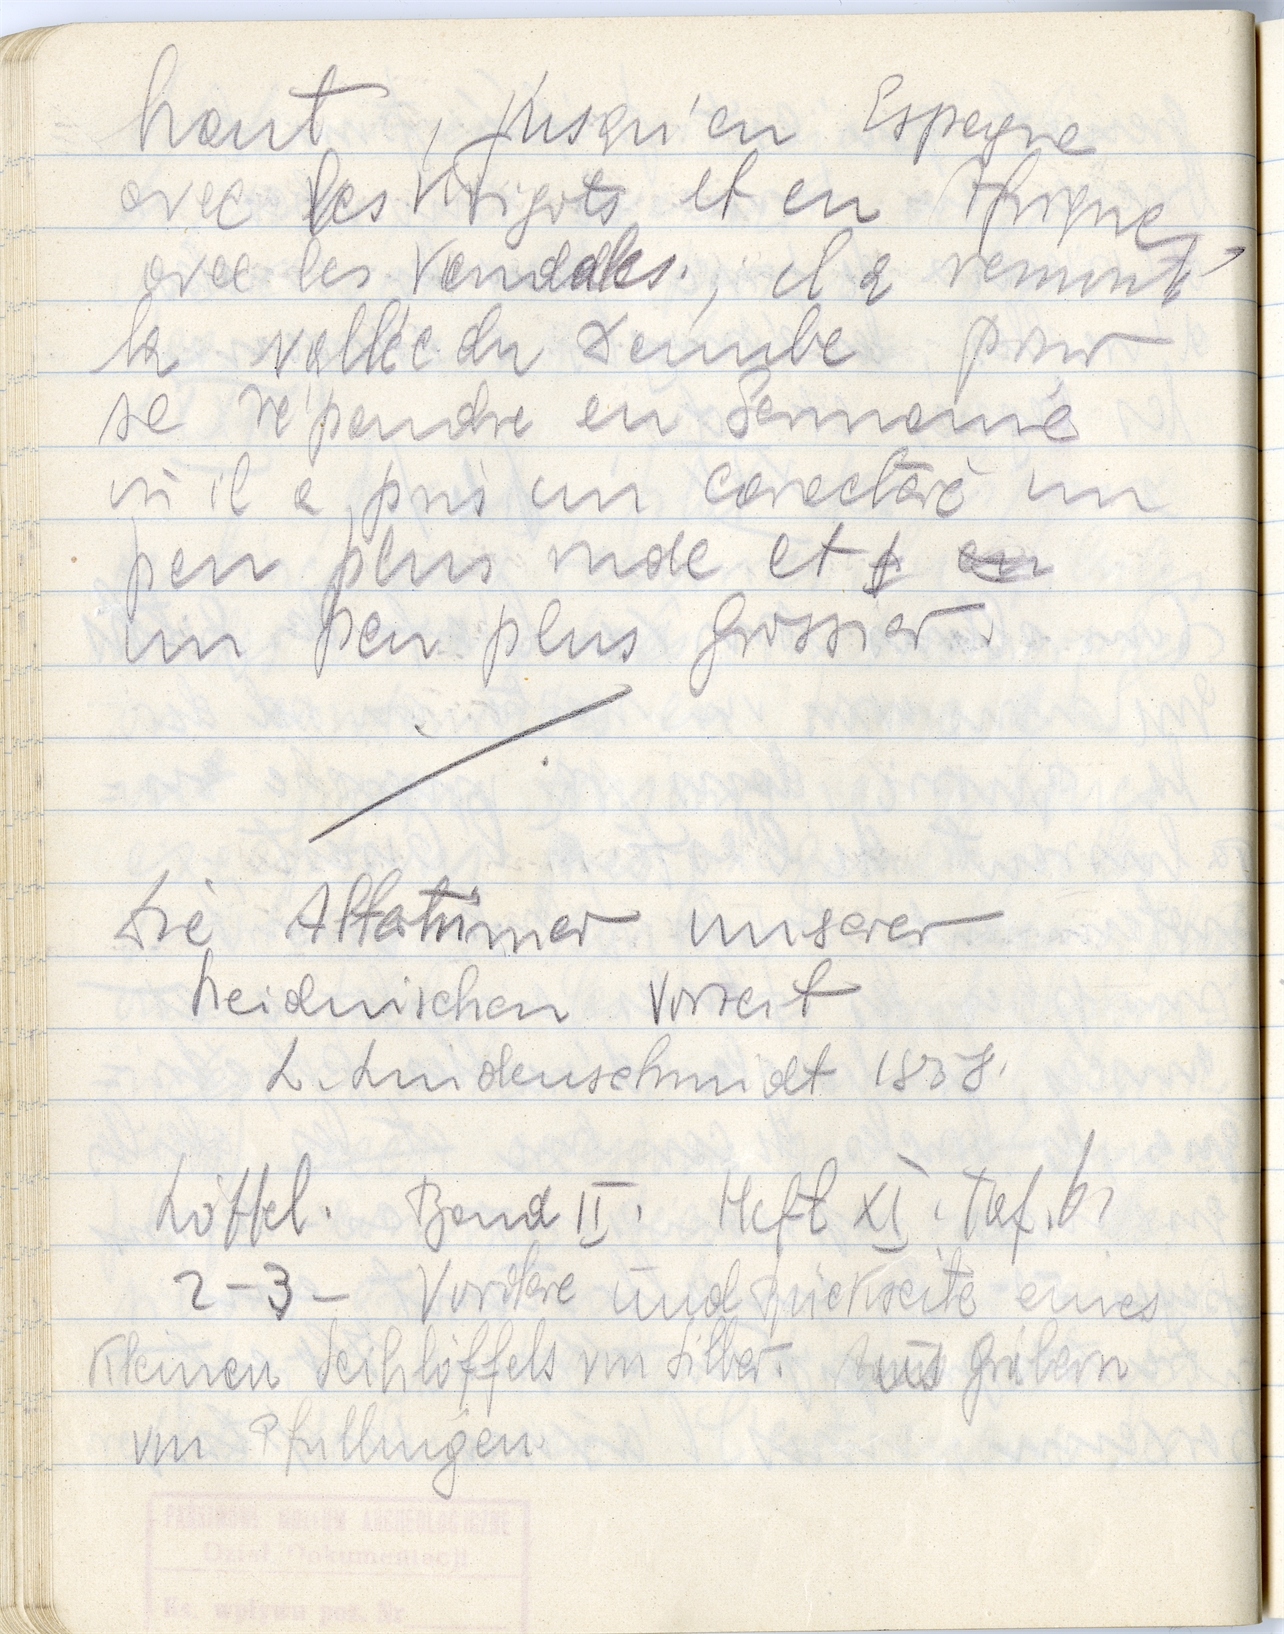 haut, jusqu'en Espagne
avec les Virigots et en Afrique
avec les Vandales.; il a remonté
la vallée du Danube pour
se répandre en Germanie
où il a pris un caractère un
peu plus rude et
un peu plus grossier.
Die Altertümer unserer
heidnischen Vorzeit
L. Lindenschmidt 1858.
Löffel. Band II. Heft XI. Taf. 6.
2-3- Vordere und Rückseite eines
kleinen Seihlöffels von Silber. Aus Gräbern
von Pfullingen
PAŃSTWOWE MUZEUM ARCHEOLOGICZNE
Dział Dokumentacji
Ks. wpływu poz. Nr